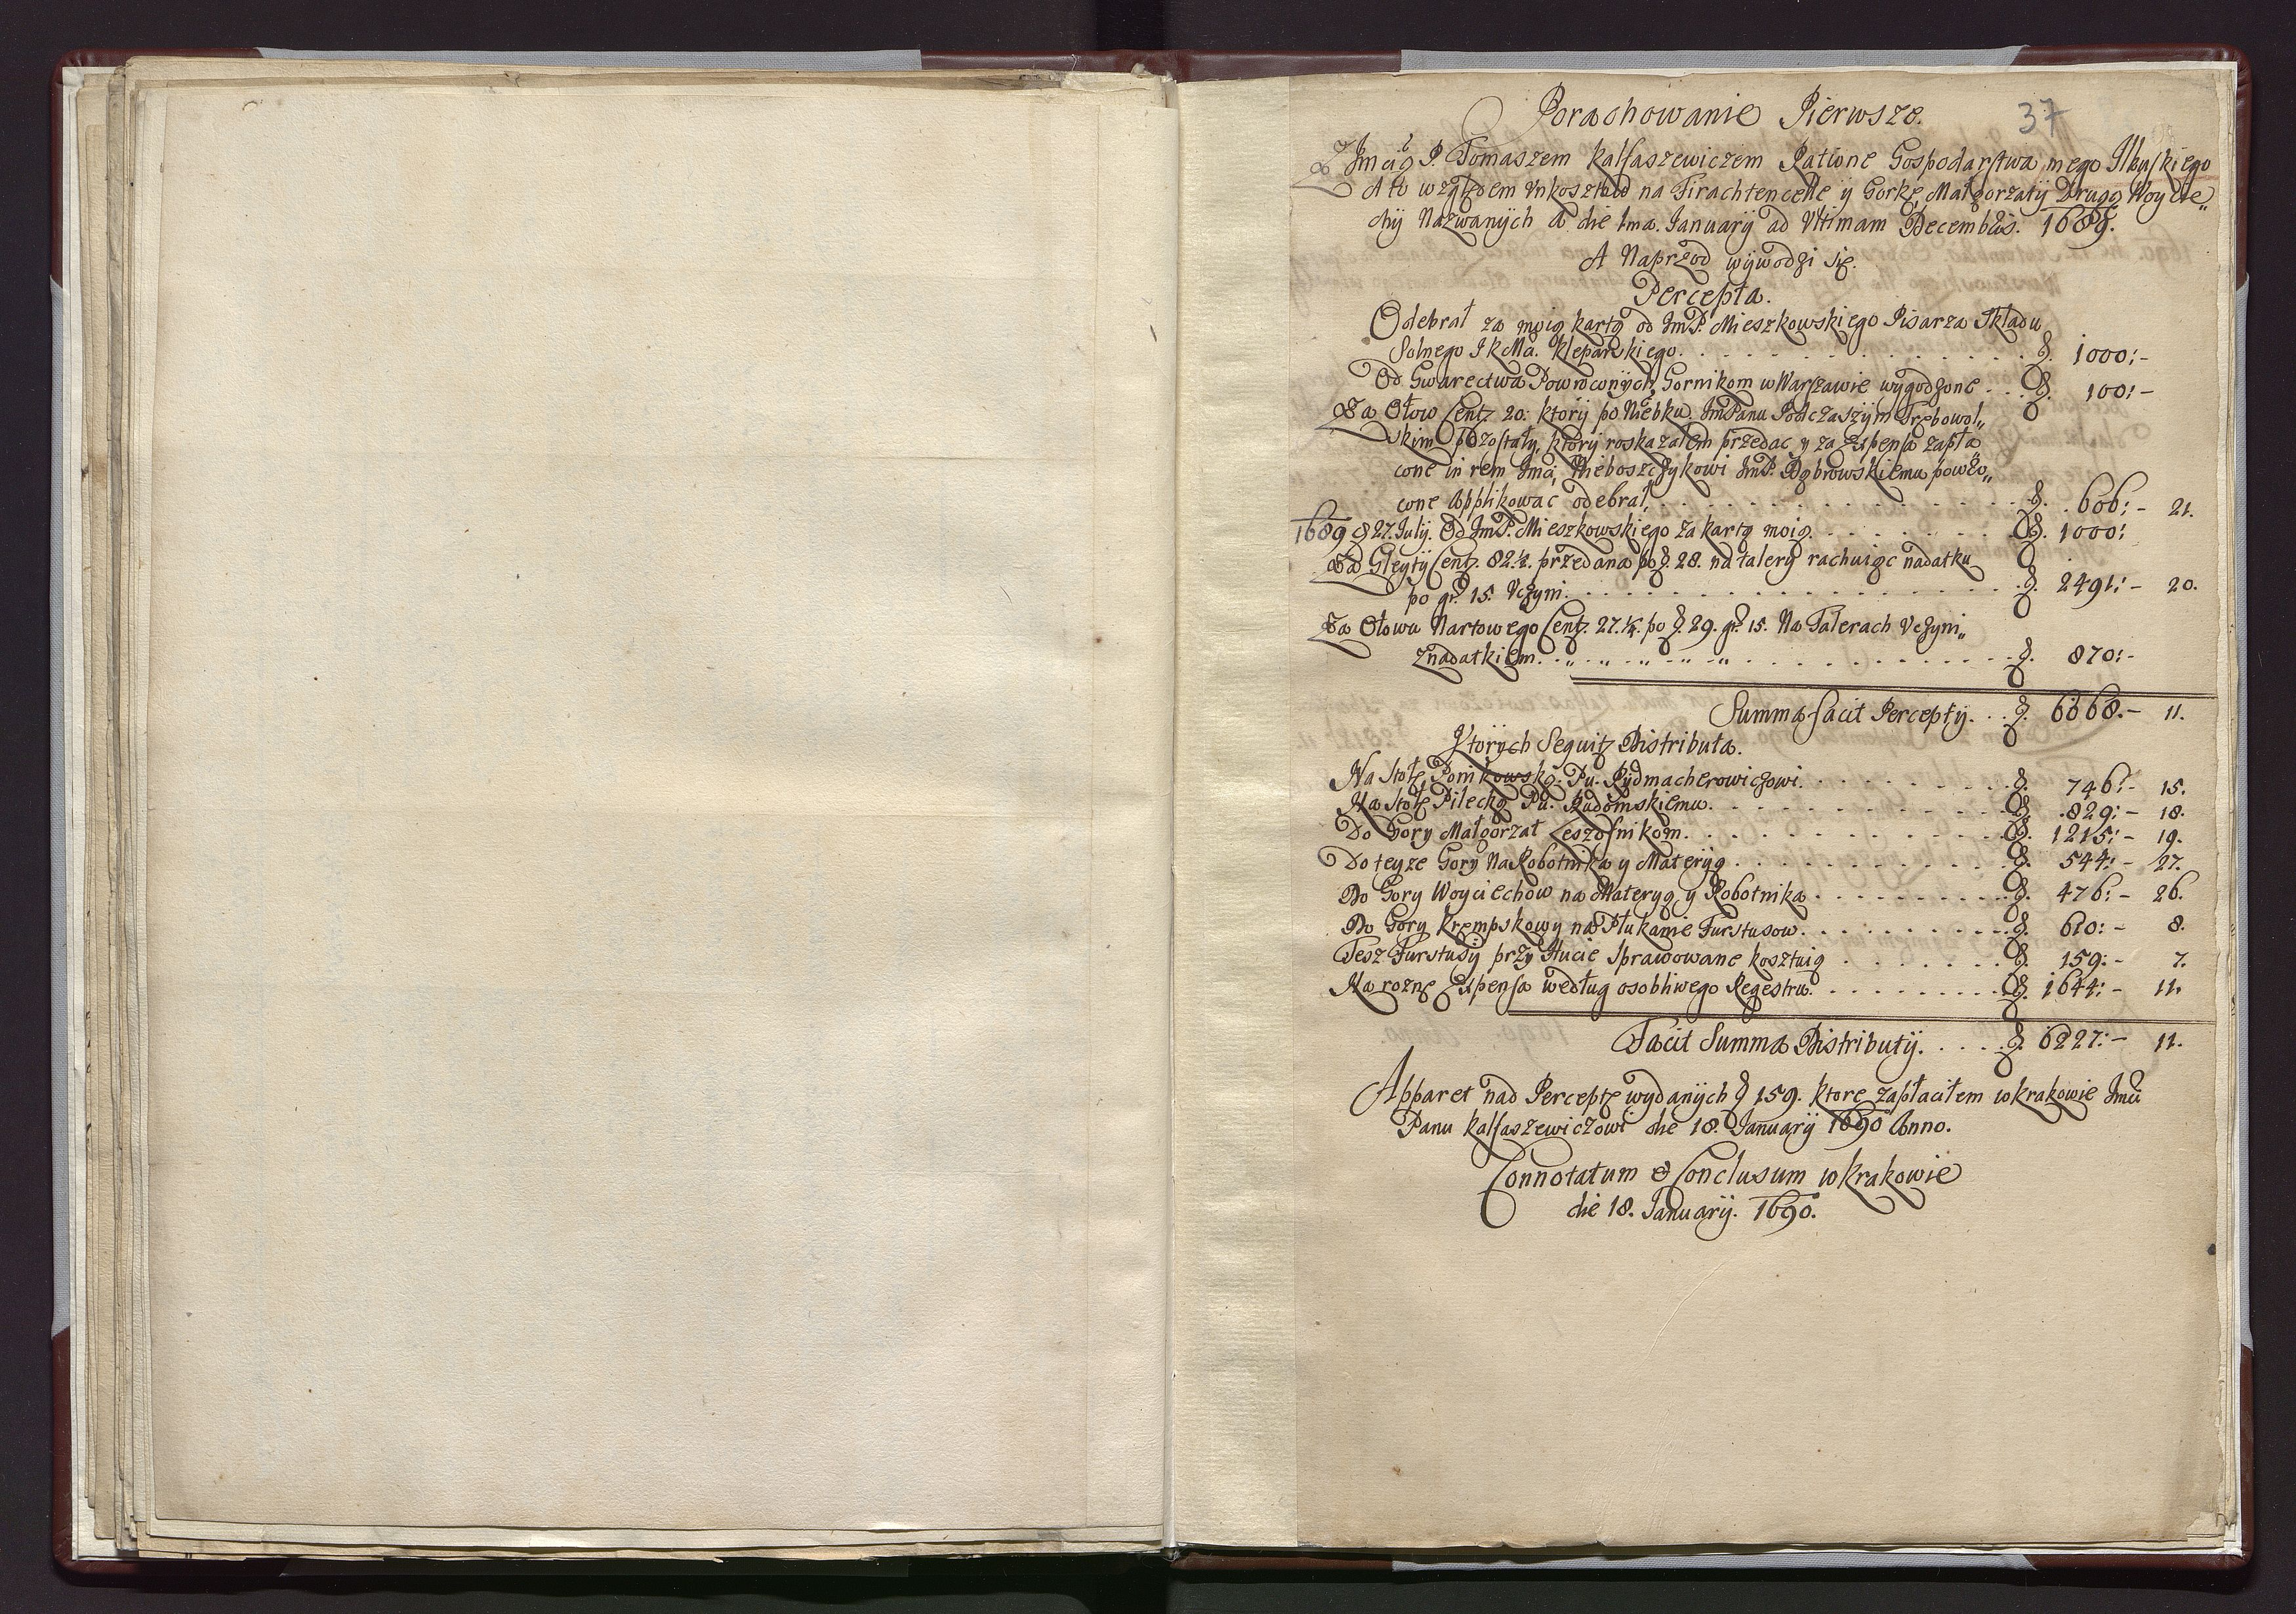 Porachowanie Pierwsze.
37
Z Jmcią P. Tomaszem Kalfaszewiczem Ratione Gospodarstwa mego Ilkuskiego
A to względem Vnkosztów na Firachtencelle y Gorkę Małgorzaty Drugą Woycie„
chÿ Nazwanÿch a die 1ma. Januarÿ ad Vltimam Decembris. 1689.
A Naprzod wÿwodzi się.
Percepta.
Odebrał za moią kartą od JmP. Mieszkowskiego Pisarza Składu
Solnego JKMci. Kleparskiego. f. 1000:-
Od Gwarectwa Powroconÿch, Gornikom w Warszawie wygodzone f. 100:-
Za Ołow Cent. 20: ktorÿ po Niebku. JmPanu Podczaszÿm Trębowol„
skim Pozostałÿ, ktorÿ roskazałem przedac y za Expensa zapła
cone in rem Jmci, Nieboszczykowi JmP. Dąbrowskiemu powro„
cone Applikowac odebrał, f. 606:- 21.
1689 d 27. Julÿ. Od JmP. Mieszkowskiego za kartą moią. f. 1000:
Za Gleytÿ Cent. 82.½. przedana po f. 28. na talerÿ rachuiąc nadatku
po gr. 15. Vczyni. f. 2491:- 20.
Za Ołowu Nartowego Cent. 27.¼. po f. 29. gr. 15. Na Talerach Vczyni„
z nadatkiem. f. 870:-
Summa facit Perceptÿ. f. 6068.- 11.
Ktorÿch Sequit. Distributa.
Na Stolę Ponikowską. Pu. Rydmacherowiczowi. f. 746:- 15.
Na Stolę Pilecką Pu. Radomskiemu. f. 829:- 18.
Do Gory Małgorzat Leszofnikom. f. 1215:- 19.
Do teyze Gory Na Robotnika y Materÿą f. 544:- 27.
Do Gory Woyciechow na Materyą y Robotnika f. 476:- 26.
Do Gory Krempskowy na Płukanie Furstusow. f. 610:- 8.
Tesz Furstusÿ przÿ Hucie Sprawowane kosztuią f. 159:- 7.
Na rozne Expensa według osobliwego Regestru. f. 1644:- 11.
Facit Summa Distributÿ. f. 6227:- 11.
Apparet nad Perceptę wydanÿch f 159. ktore zapłaciłem w Krakowie Jmci
Panu Kalfaszewiczowi die 18. Januarÿ 1690 Anno.
Connotatum & Conclusum w Krakowie
die 18. Januarÿ. 1690.